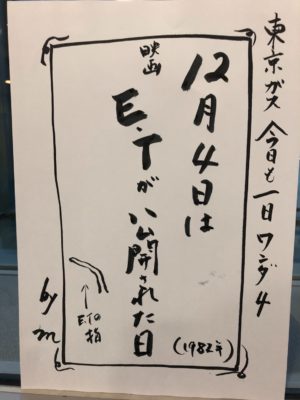 東京ガス 今日も一日ワンダ4
12月4日は
映画
E.Tが公開された日
(1982年)
↑
E.Tの指
by m